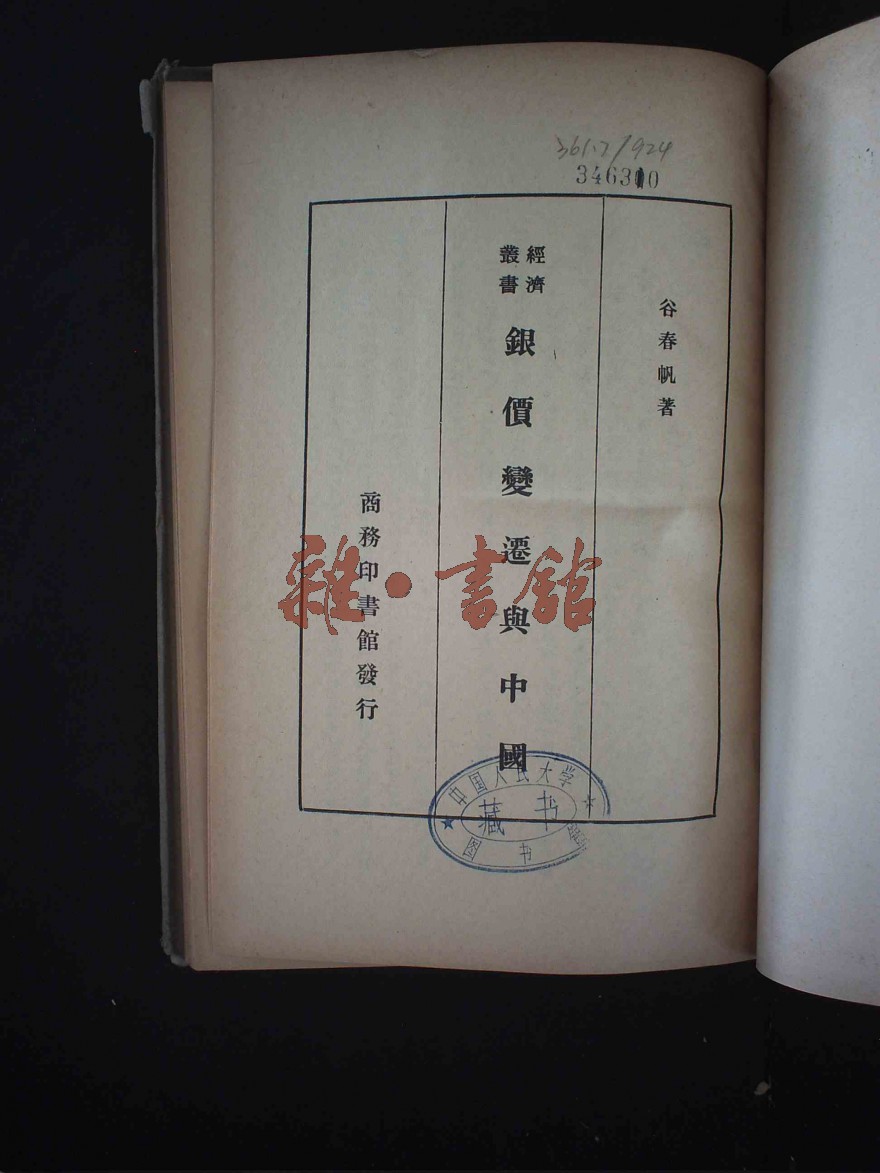 361.7/924
346310
谷春帆著
經濟
叢書
銀價變遷與中國
商務印書館發行
雜·書館
中国人民大学
藏书
图书馆